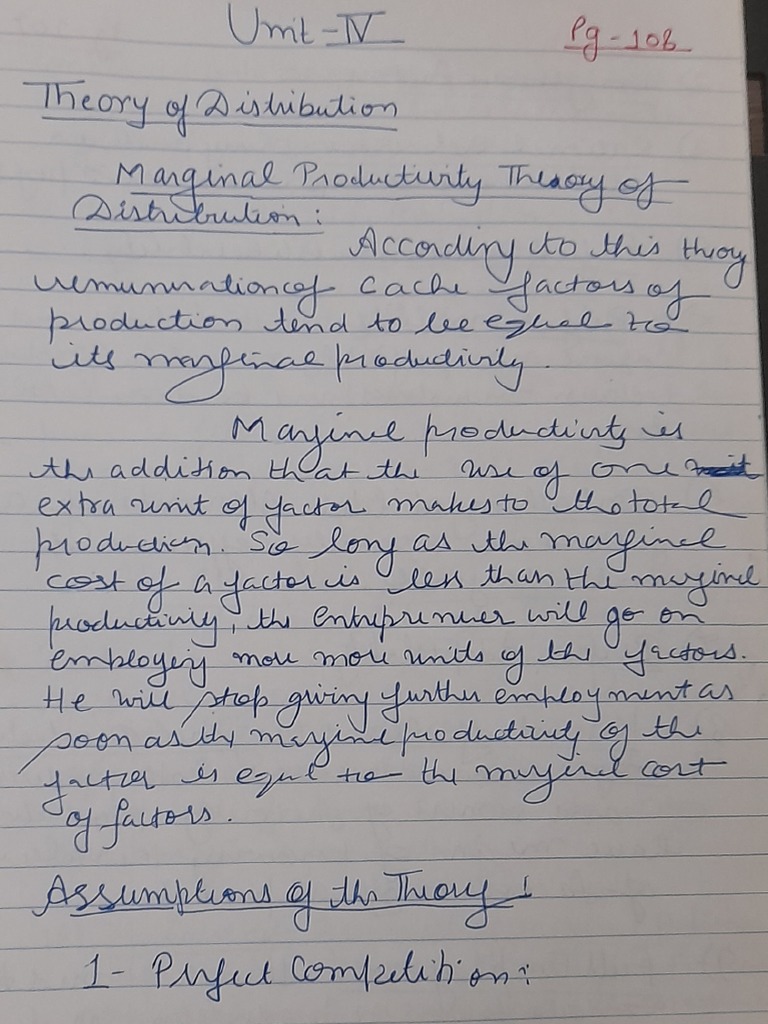 Unit-IV
Pg-108
Theory of Distribution
Marginal Productivity Theory of
Distribution:
According to this theoy
remunuration of cache factors of
production tend to be equal to
its marginal productivity.
Marginal productivity is
the addition that the use of one unit
extra unit of factor makes to the total
production. So long as the marginal
cost of a factor is less than the marginal
productivity, the entreprenuer will go on
employing more more units of the factors.
He will stop giving further employment as
soon as the marginal productivity of the
factor is equal to the marginal cost
of factors.
Assumptions of the Theory :
1- Perfect Competition: